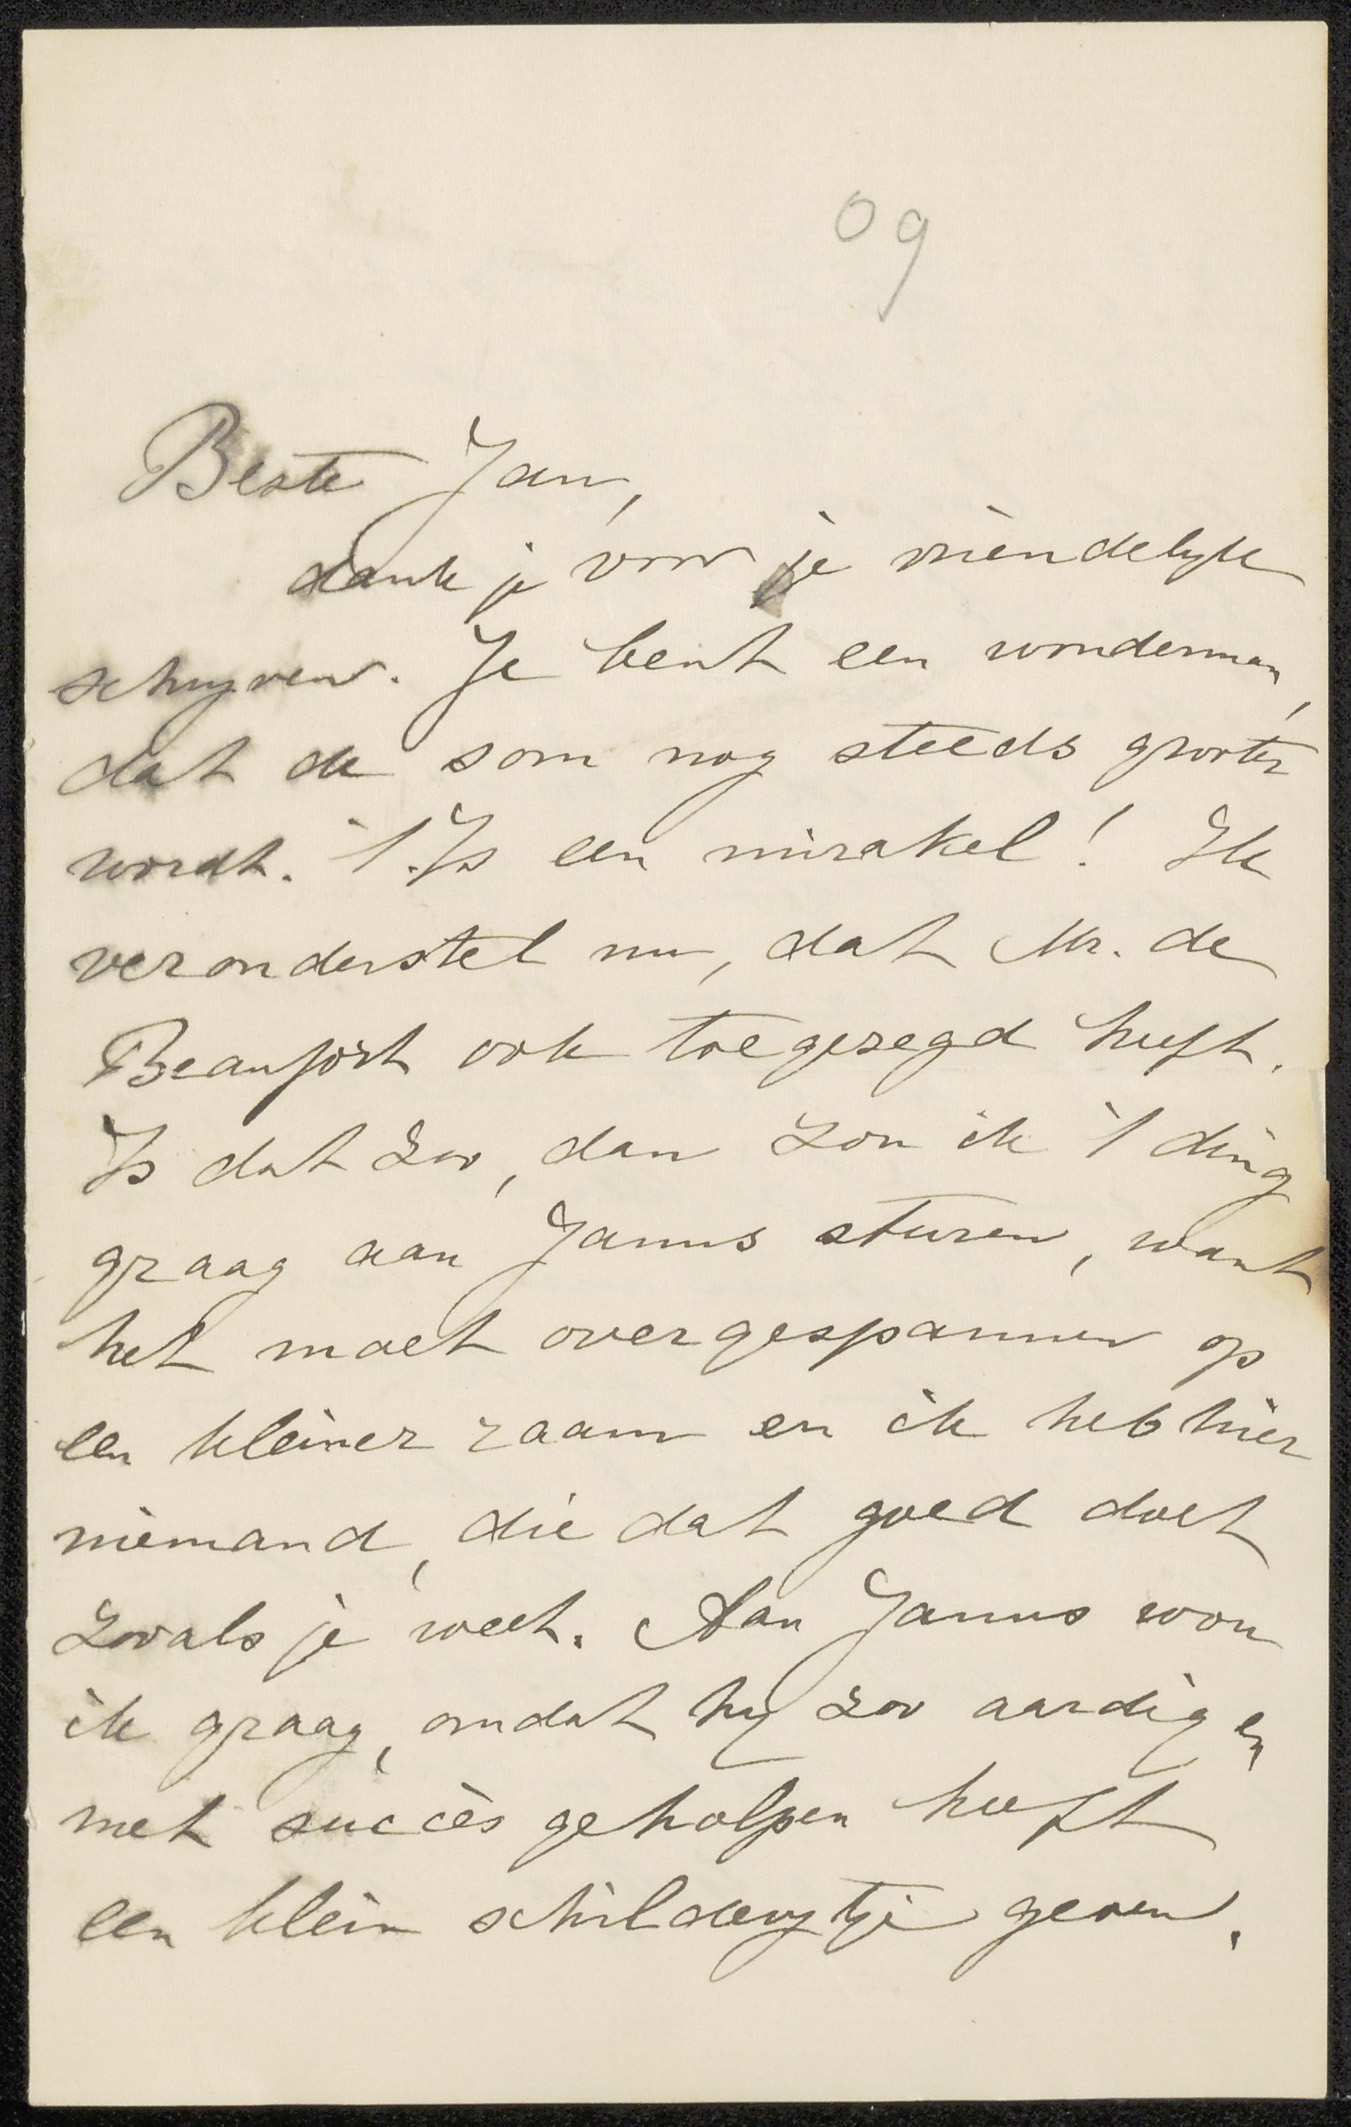 09
Beste Jan,
dank je voor je vriendelyk
schryven. Je bent een wonderman,
dat de som nog steeds grooter
wordt. 't Is een mirakel! Ik
veronderstel nu, dat Mr. de
Beaufort ook toegezegd heeft.
Is dat zoo, dan zou ik 't ding
graag aan Janus sturen, want
het moet overgespannen op
een kleiner raam en ik heb hier
niemand, die dat goed doet
zooals je weet. Aan Janus wou
ik graag, omdat hy zoo aardig en
met succès geholpen heeft
een klein schilderytje geven.